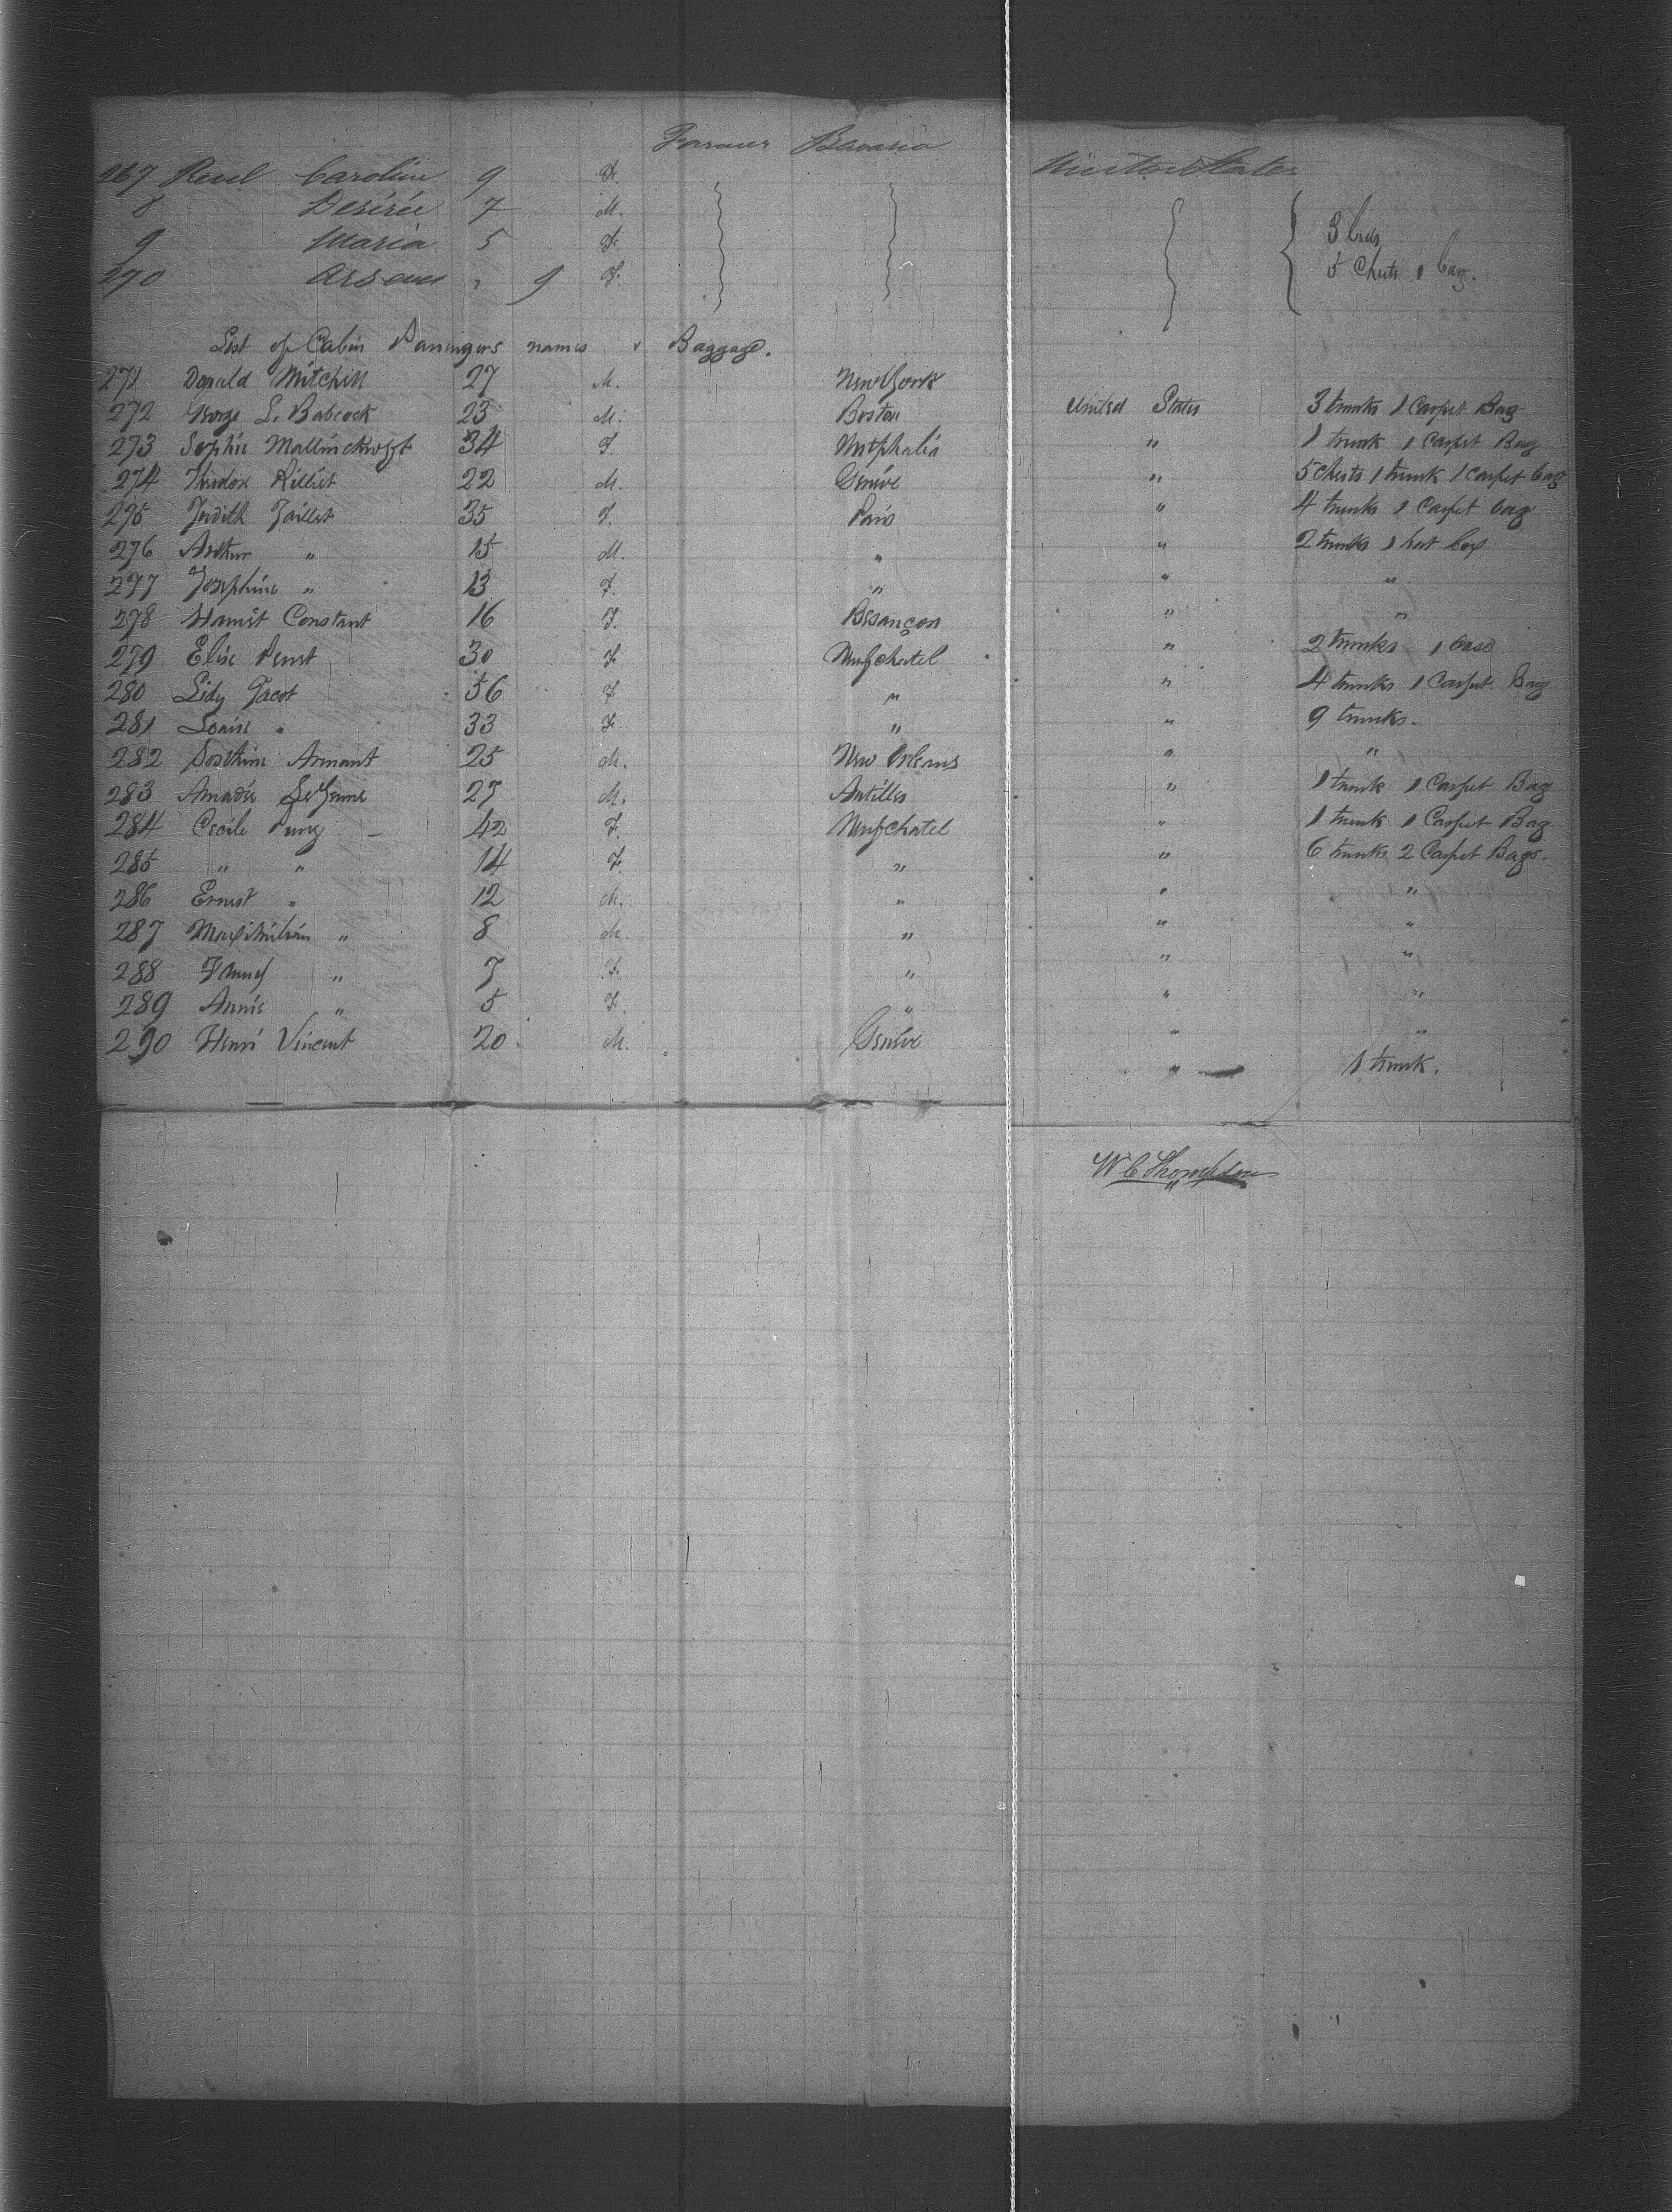 Farmer Bavaria United States
267 Revel Caroline 9 F.
8 Désirée 7 M.
9 Maria 5 F. 3 beds
270 " 9 F. 5 Chests 1 bag.
List of Cabin Passengers names & Baggage.
271 Donald Mitchell 27 M. New York United States 3 trunks 1 Carpet Bag
272 George L. Babcock 23 M. Boston " 1 trunk 1 Carpet Bag
273 Sophie Mallinckrodt 34 F. Westphalia " 5 Chests 1 trunk 1 Carpet bag
274 Theodore Rilliet 22 M. Genève " 4 trunks 1 Carpet bag
275 Judith Gaillet 35 F. Paris " 2 trunks 1 hat box
276 Arthur " 15 M. " " "
277 Josephine " 13 F. " " "
278 Constant 16 F. Besançon " 2 trunks 1 Case
279 Elise 30 F. Neufchatel " 4 trunks 1 Carpet Bag
280 Lidy Jacot 56 F. " " 9 trunks.
281 Louise " 33 F. " " "
282 Sosthine Armant 25 M. New Orleans " 1 trunk 1 Carpet Bag
283 Amadée 27 M. Antilles " 1 trunk 1 Carpet Bag
284 Cecile 42 F. Neufchatel " 6 trunks 2 Carpet Bags.
285 " " 14 F. " " "
286 Ernest " 12 M. " " "
287 Maximilian " 8 M. " " "
288 Fanny " 7 F. " " "
289 Annie " 5 F. " " "
290 Henri Vincent 20 M. Genève " 1 trunk.
W C Thompson